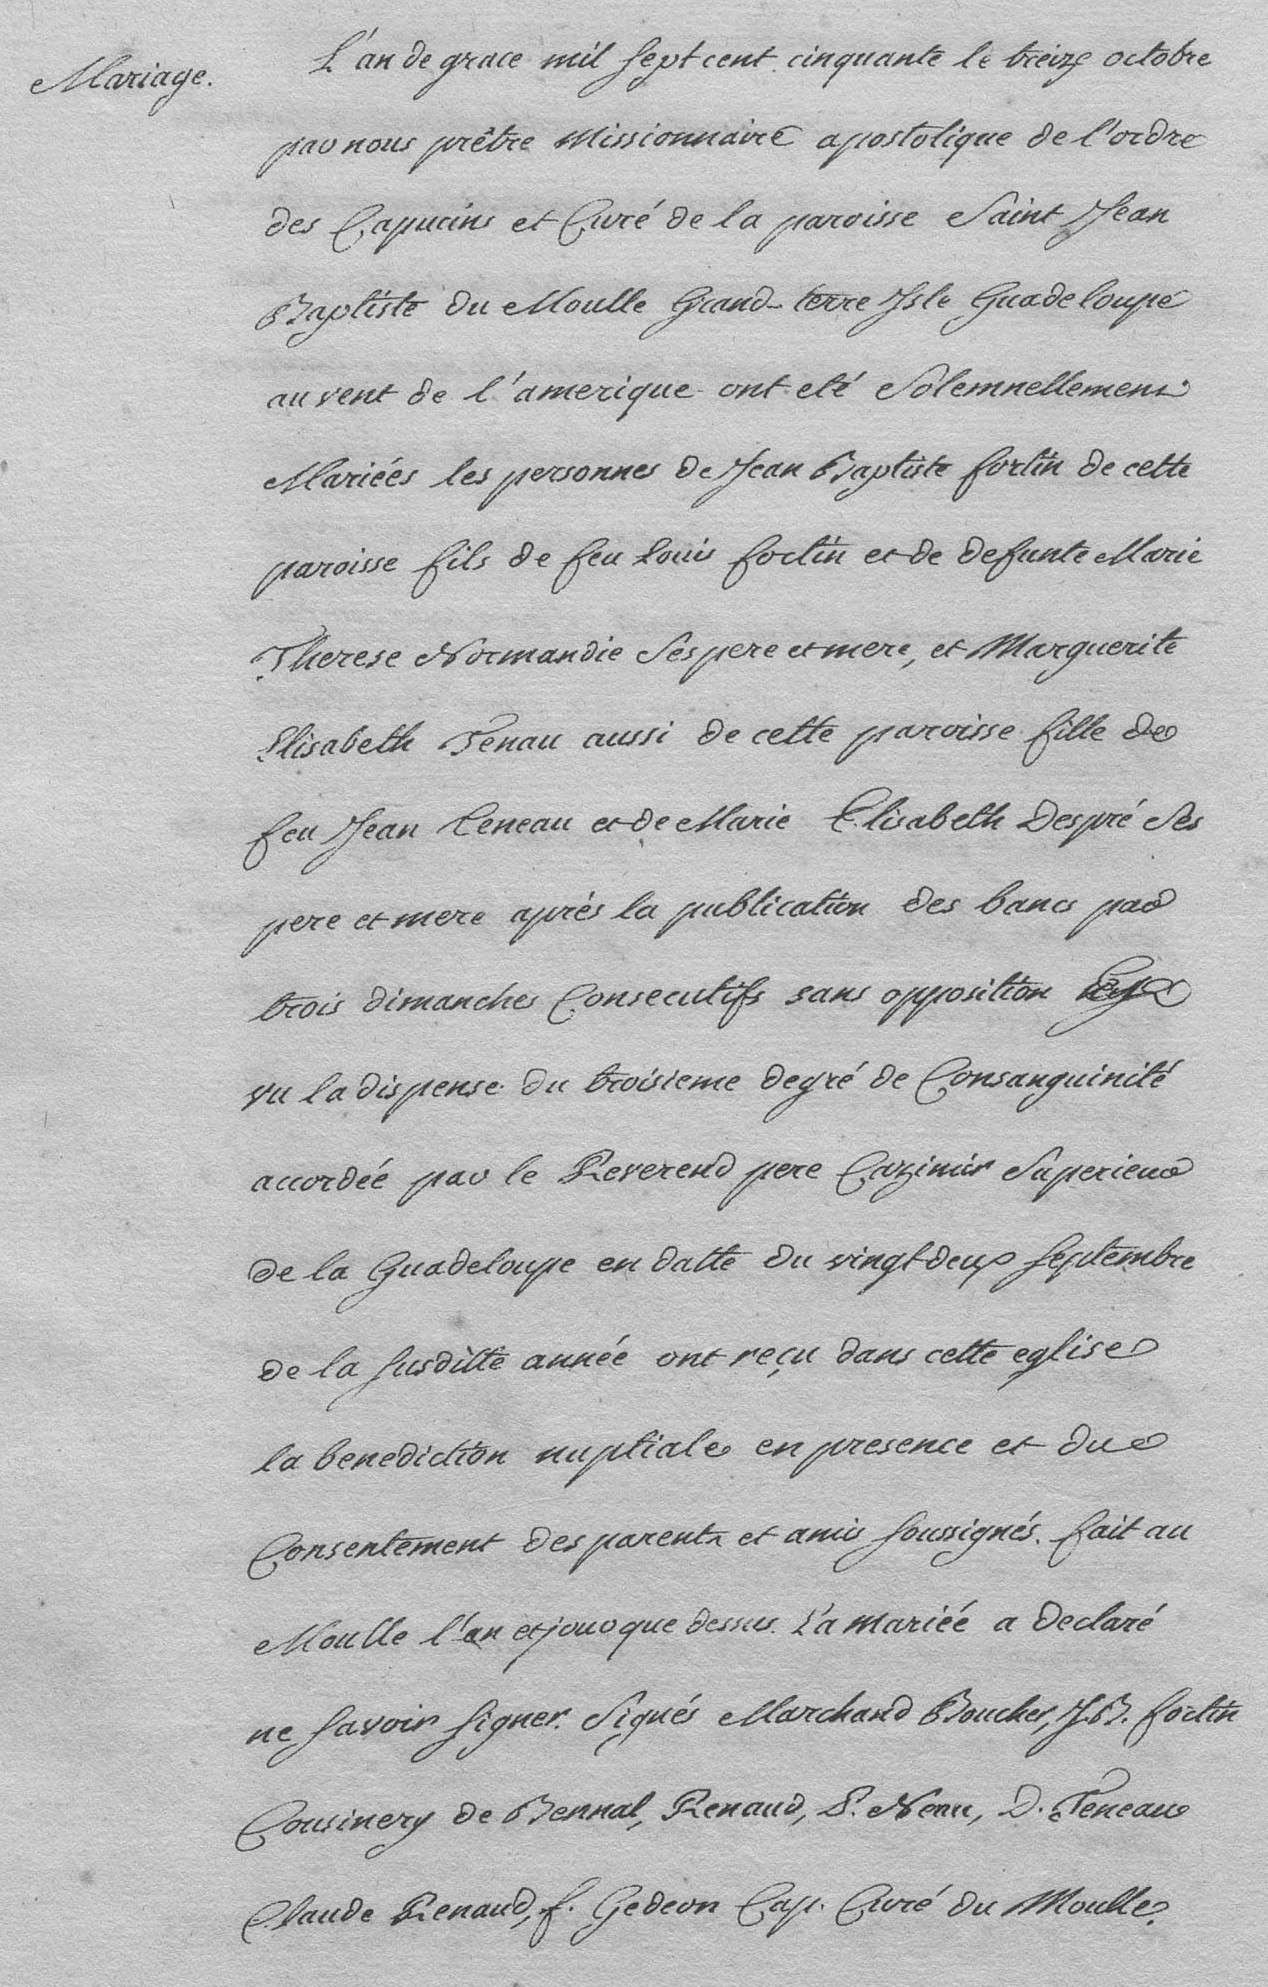 Mariage.
L'an de grace mil sept cent cinquante le treize octobre
par nous prêtre Missionnaire apostolique de l'ordre
des Capucins et Curé de la paroisse Saint Jean
Baptiste du Moulle Grand-terre Isle Guadeloupe
au vent de l'amerique ont eté Solemnellement
Mariéés les personnes de Jean Baptiste fortin de cette
paroisse fils de feu Louis fortin et de defunte Marie
Therese Normandie Ses pere et mere, et Marguerite
Elisabeth Tenau aussi de cette paroisse fille de
feu Jean Teneau et de Marie Elisabeth Despré Ses
pere et mere aprés la publication des bancs par
trois dimanches Consecutifs sans opposition
vu la dispense du troisieme degré de Consanguinité
accordéé par le Reverend pere Cazimir Superieur
de la Guadeloupe en datte du vingt deux septembre
de la susditte année ont reçu dans cette eglise
la benediction nuptiale en presence et du
Consentement des parents et amis soussignés. fait au
Moulle l'an et jour que dessus. La mariéé a declaré
ne savoir signer. Signés Marchand Boucher, J.B. fortin
Cousinery de Bennal, Renaud, P. Neau, D. Teneau
Claude Renaud, f. Gedeon Cap. Curé du Moulle.